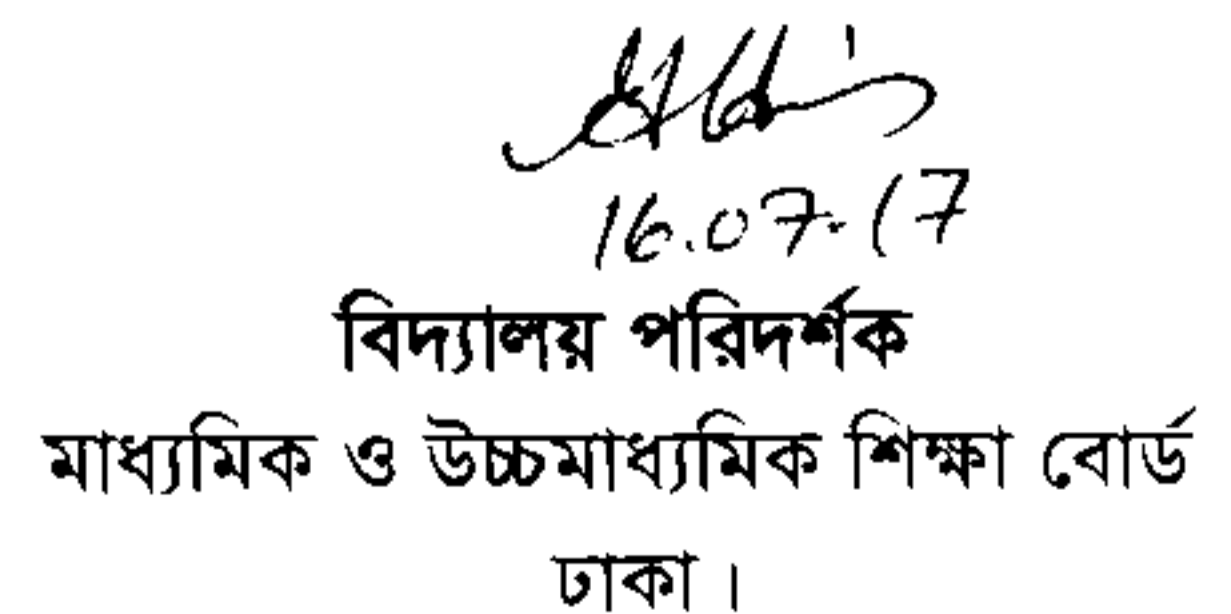 16.07.17
বিদ্যালয় পরিদর্শক
মাধ্যমিক ও উচ্চমাধ্যমিক শিক্ষা বোর্ড
ঢাকা।